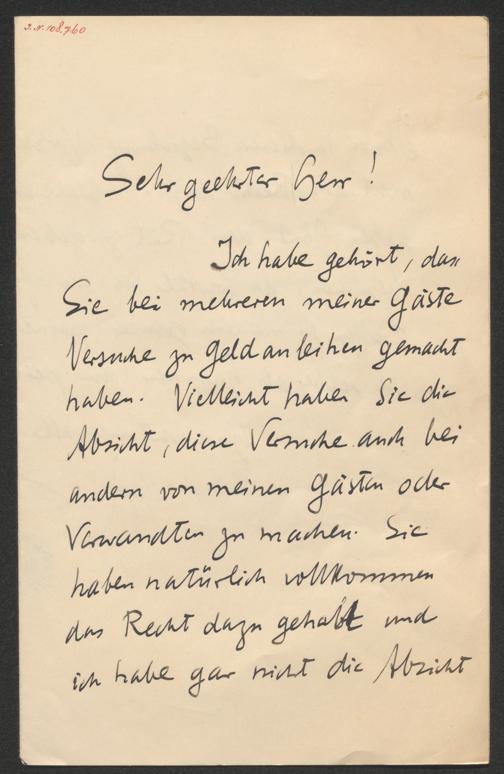 I.N. 108.760
Sehr geehrter Herr!
Ich habe gehört, dass
Sie bei mehreren meiner Gäste
Versuche zu Geldanleihen gemacht
haben. Vielleicht haben Sie die
Absicht, diese Versuche auch bei
andern von meinen Gästen oder
Verwandten zu machen. Sie
haben natürlich vollkommen
das Recht dazu gehabt und
ich habe gar nicht die Absicht